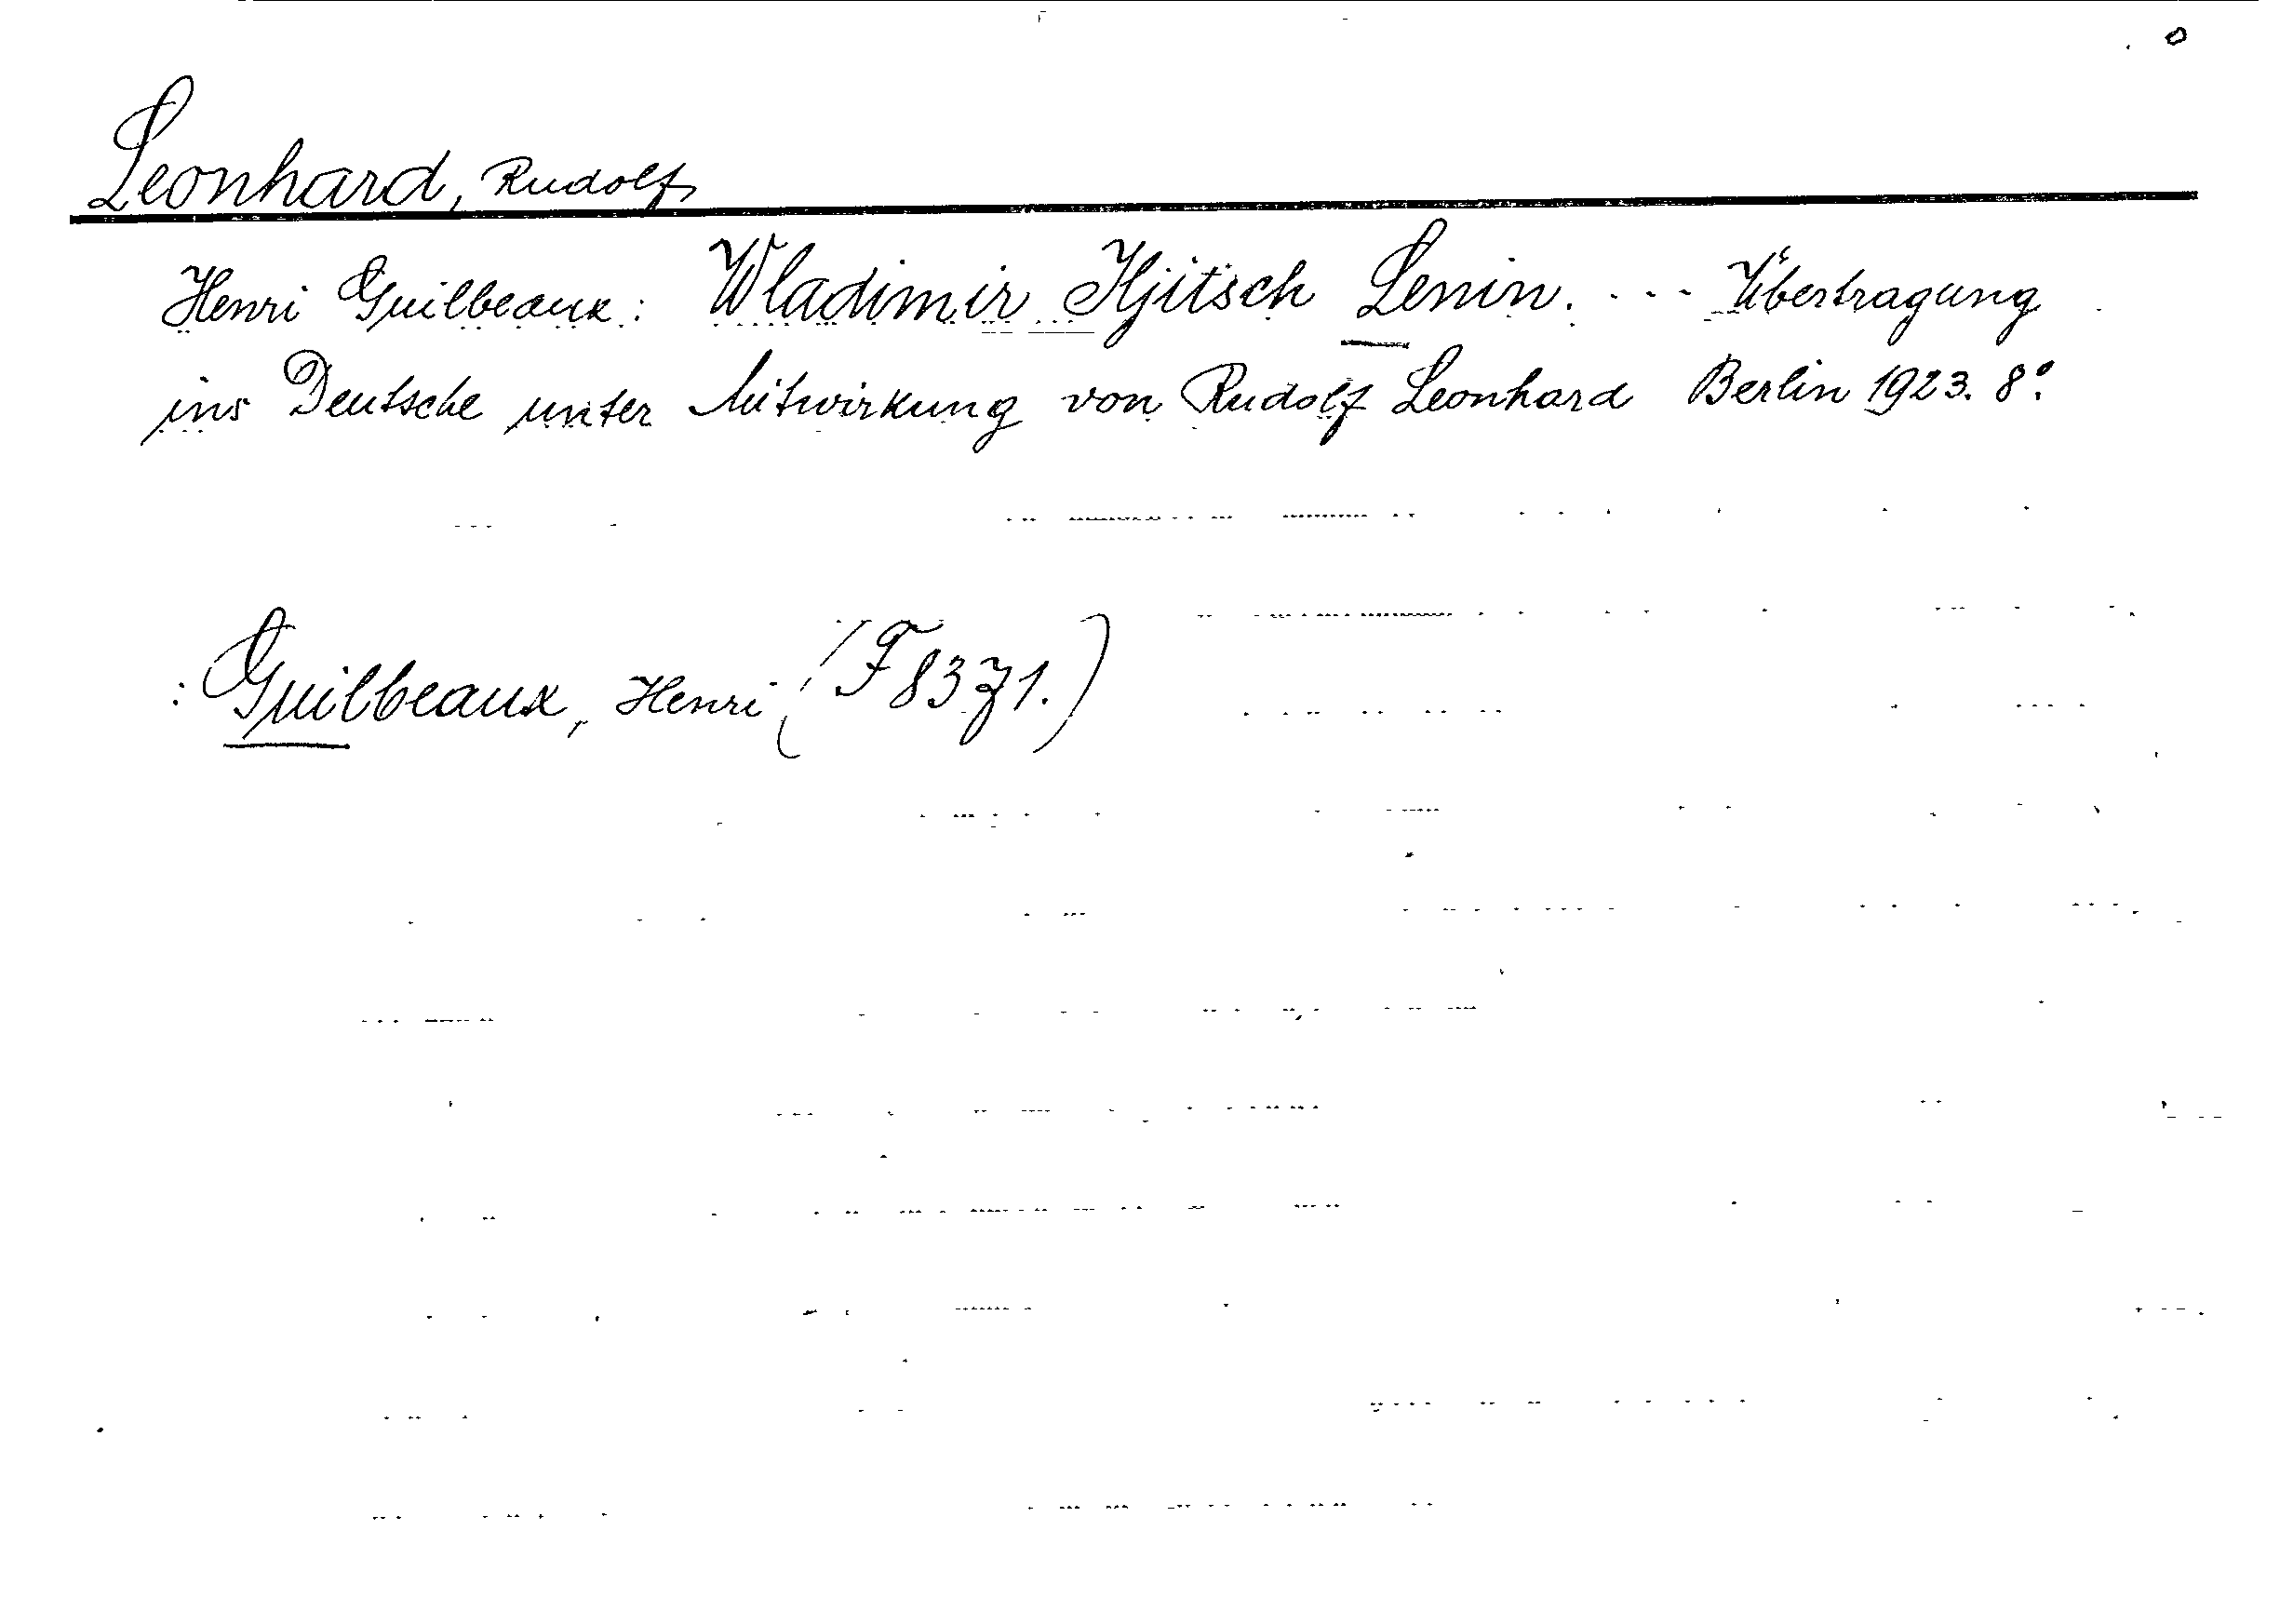 Leonhard, Rudolf
Henri Guilbeaux: Wladimir Iljitsch Lenin. ... Übertragung
ins Deutsche unter Mitwirkung von Rudolf Leonhard Berlin 1923. 8°.
: Guilbeaux, Henri (F 8371.)